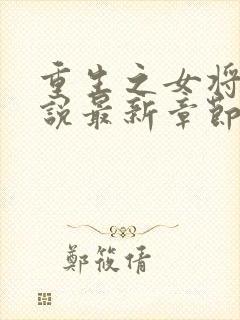 重生之女将
說最新章節
鄭筱倩